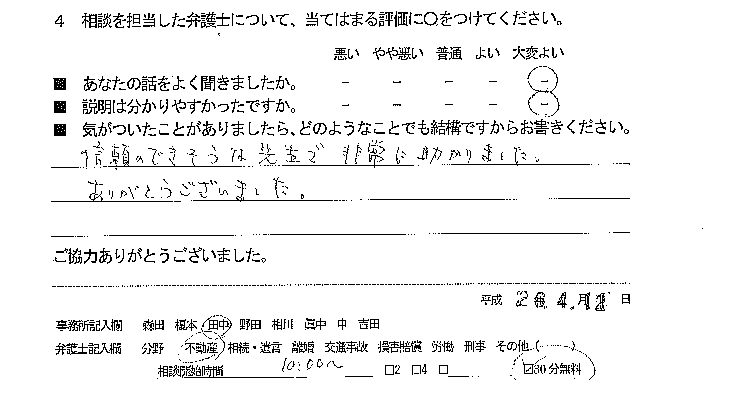 4 相談を担当した弁護士について、当てはまる評価に○をつけてください。
悪い やや悪い 普通 よい 大変よい
■ あなたの話をよく聞きましたか。 － － － － －
■ 説明は分かりやすかったですか。 － － － － －
■ 気がついたことがありましたら、どのようなことでも結構ですからお書きください。
信頼のできそうな先生で 非常に助かりました。
ありがとうございました。
ご協力ありがとうございました。
平成 月 日
事務所記入欄 森田 榎本 田中 野田 相川 眞中 中 吉田
弁護士記入欄 分野 不動産 相続・遺言 離婚 交通事故 損害賠償 労働 刑事 その他（ ）
相談開始時間 10:00~ □2 □4 □ ☑30分無料